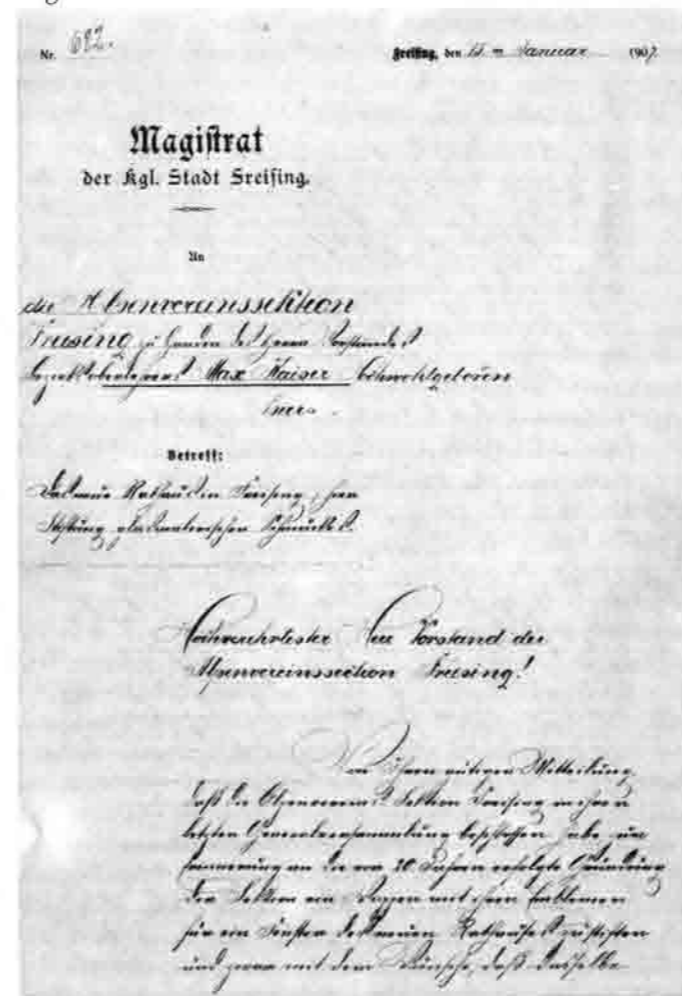 Nr. 682.
Freising, den 15. ten Januar 1907.
Magistrat
der Kgl. Stadt Freising.
An
die Alpenvereinssektion
Freising zu Handen des Herrn Vorstandes
Bezirks Max Kaiser Hochwohlgeboren
hier.
Betreff:
Das neue Rathaus in Freising, hier
Stiftung glasmalerischen Schmuckes.
Hochverehrtester Herr Vorstand der
Alpenvereinssection Freising!
Von Ihrer gütigen Mitteilung,
daß die Alpenvereins Sektion Freising in ihrer
letzten Generalversammlung beschlossen habe, zur
Erinnerung an die vor 20 Jahren erfolgte Gründung
der Sektion ein Wappen mit ihren Emblemen
für ein Fenster des neuen Rathauses zu stiften
und zwar mit dem Wunsche, daß dasselbe